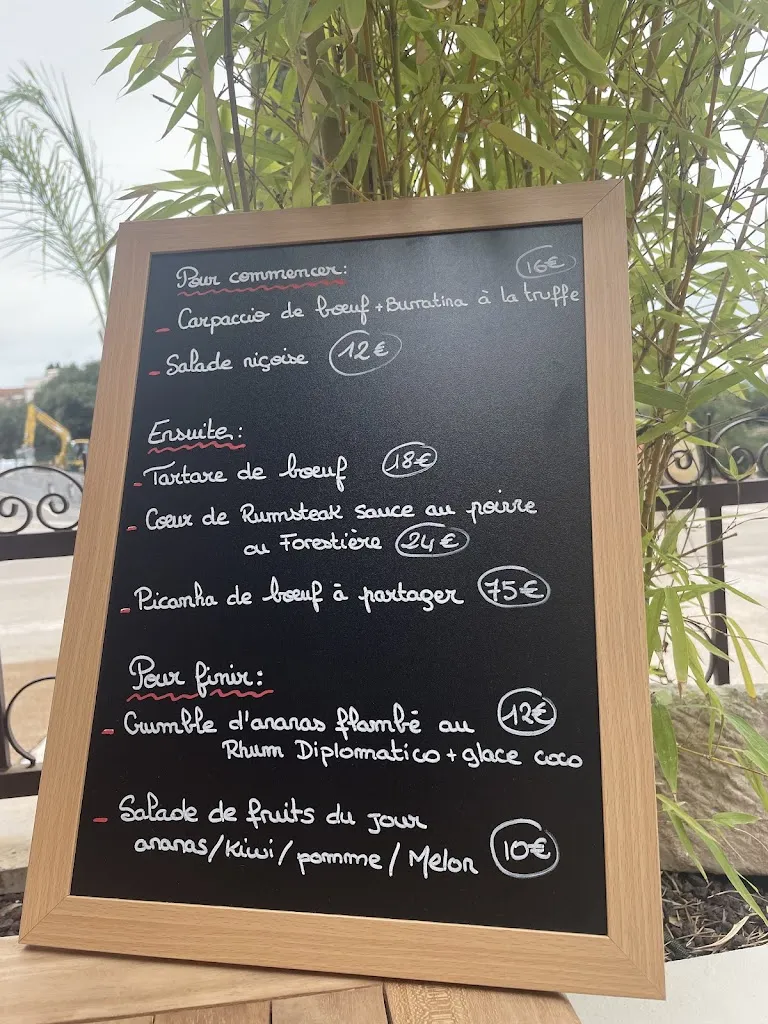 Pour commencer: 16€
- Carpaccio de bœuf + Burratina à la truffe
- Salade niçoise 12€
Ensuite:
- Tartare de bœuf 18€
- Cœur de Rumsteak sauce au poivre
ou Forestière 24€
- Picanha de bœuf à partager 75€
Pour finir:
- Crumble d'ananas flambé au 12€
Rhum Diplomatico + glace coco
- Salade de fruits du jour
ananas/Kiwi/pomme/Melon 10€